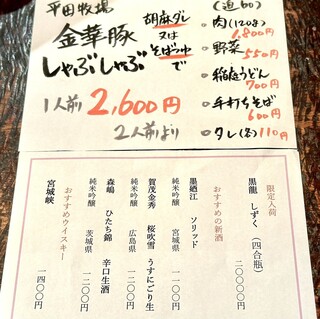 平田牧場
金華豚
しゃぶしゃぶ
胡麻ダレ
又は
そばつゆ
で
1人前 2,600円
2人前より
(追加)
・肉(120g)
1,800円
・野菜
550円
・稲庭うどん
700円
・手打ちそば
600円
・タレ(各)110円
限定入荷
黒龍 しずく (四合瓶) 二〇〇〇〇円
おすすめの新酒
墨廼江 ソリッド
純米吟醸 宮城県 一一〇〇円
賀茂金秀 桜吹雪 うすにごり生
純米吟醸 広島県 一二〇〇円
森嶋 ひたち錦 辛口生酒
純米吟醸 茨城県 一二〇〇円
おすすめウイスキー
宮城峡 一四〇〇円